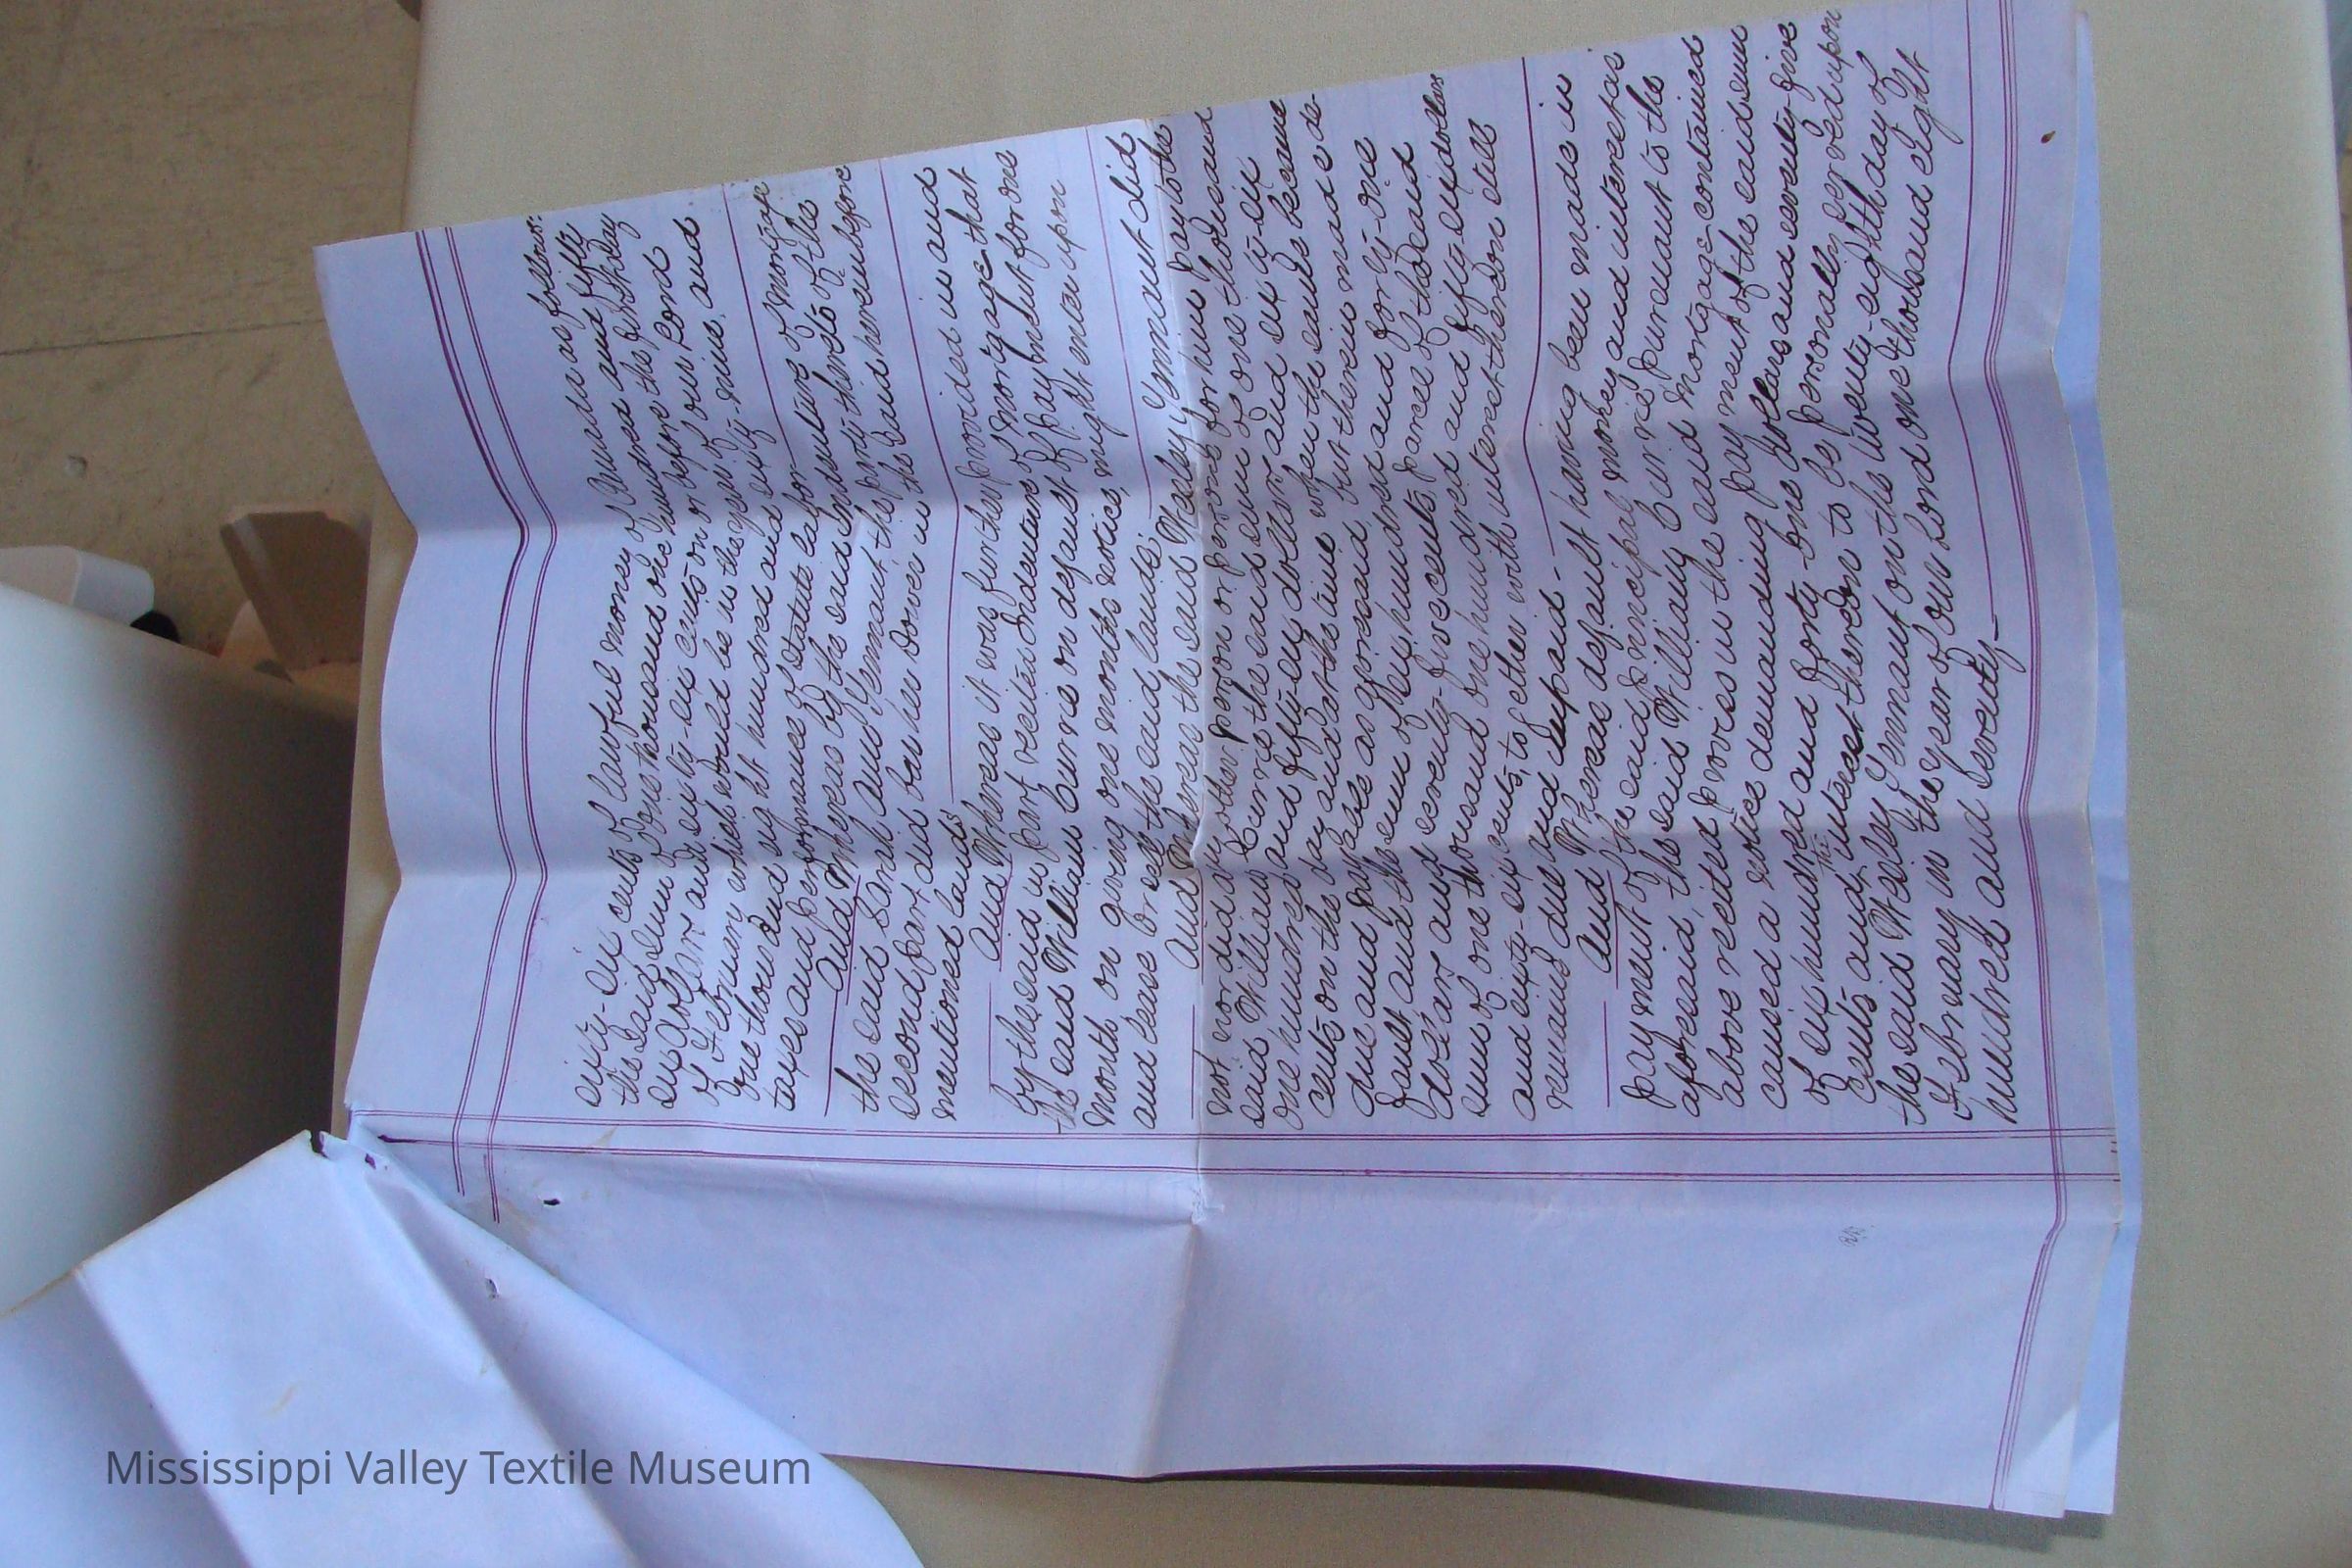 sixty-six cents of lawful money of Canada as follows:
the said sum of one thousand one hundred and fifty
six dollars and sixty-six cents on or before the fourth day
of February which would be in the year of our Lord
one thousand eight hundred and sixty-nine, and
taxes and performance of statute labor
And Whereas by the said Indenture of Mortgage
the said Sarah Ann Yemmant, the party thereto of the
second part did bar her Dower in the said hereinbefore
mentioned lands
And Whereas it was further provided in and
by the said in part recited Indenture of Mortgage that
the said William Currie on default of payment for one
month on giving one months notice, might enter upon
and lease or sell the said lands:
And Whereas the said Wesley Yemmant did
not nor did any other person or persons for him pay to the
said William Currie the said sum of one thousand
one hundred and fifty-six dollars and sixty-six
cents on the day and at the time when the same became
due and payable as aforesaid, but therein made de-
fault and the sum of six hundred and forty-one
dollars and seventy-five cents, parcel of the said
sum of one thousand one hundred and fifty six dollars
and sixty-six cents, together with interest thereon still
remains due and unpaid -
And Whereas default having been made in
payment of the said principal money and interest as
aforesaid, the said William Currie, pursuant to the
above recited proviso in the said Mortgage contained
caused a notice demanding payment of the said sum
of six hundred and forty-one dollars and seventy-five
cents and the interest thereon to be personally served upon
the said Wesley Yemmant on the twenty-eighth day of
February in the year of our Lord one thousand eight
hundred and seventy-
Mississippi Valley Textile Museum